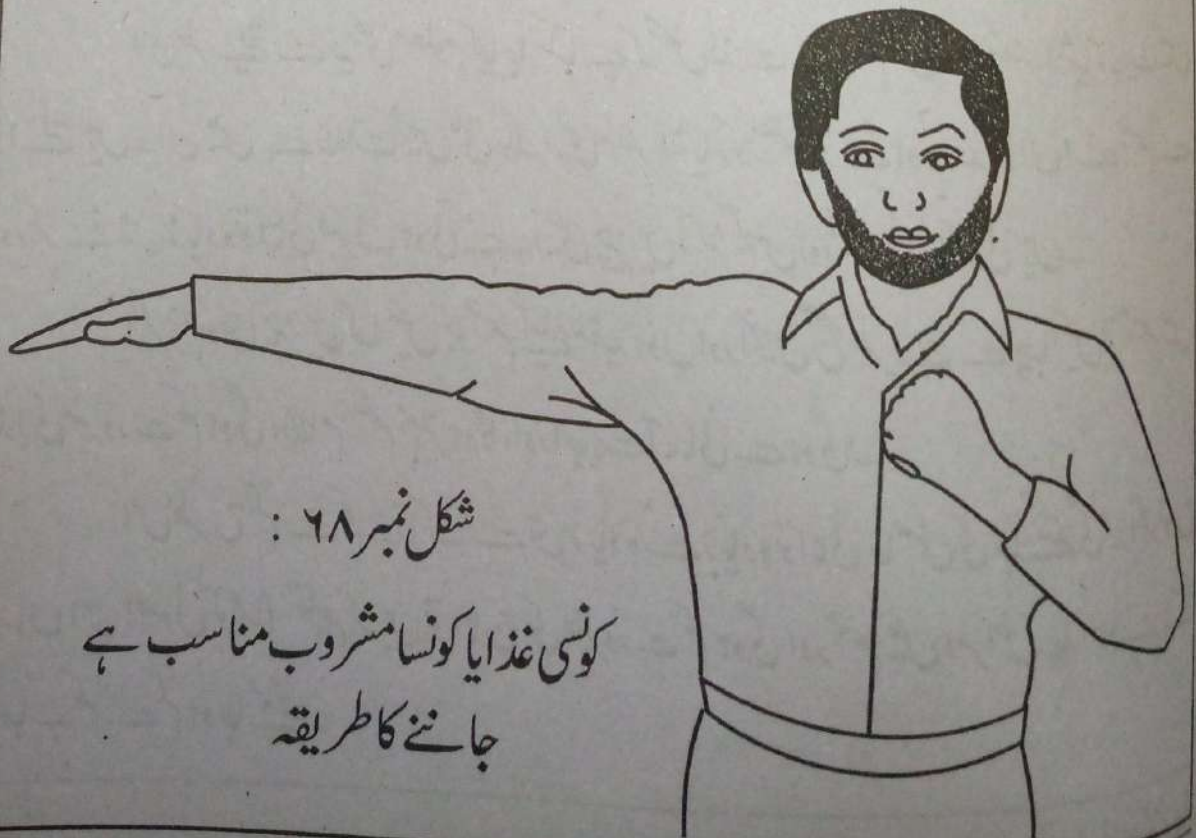 شکل نمبر ۶۸ :
کونسی غذا یا کونسا مشروب مناسب ہے
جاننے کا طریقہ